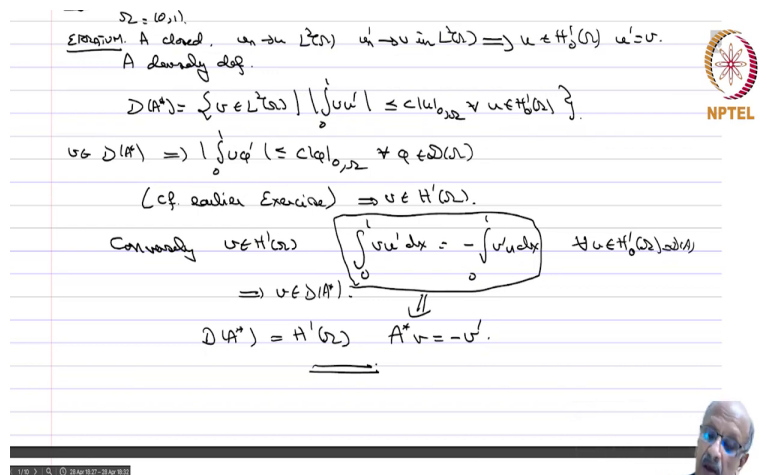 Ω = (0,1).
ERRATUM. A closed. uₙ → u L²(Ω) uₙ' → v in L²(Ω) ⟹ u ∈ H¹₀(Ω) u' = v.
A densely def.
D(A*) = { v ∈ L²(Ω) | |∫₀¹ vu'| ≤ C|u|₀,Ω ∀ u ∈ H¹₀(Ω) }.
v ∈ D(A*) ⟹ |∫₀¹ vφ'| ≤ C|φ|₀,Ω ∀ φ ∈ D(Ω)
(cf. earlier Exercise) ⟹ v ∈ H¹(Ω).
Conversely v ∈ H¹(Ω) ∫₀¹ vu' dx = - ∫₀¹ v'u dx ∀ u ∈ H¹₀(Ω) = D(A)
⟹ v ∈ D(A*).
⇓
D(A*) = H¹(Ω) A*v = -v'.
NPTEL
1/10 28 Apr 16:27 - 28 Apr 16:32